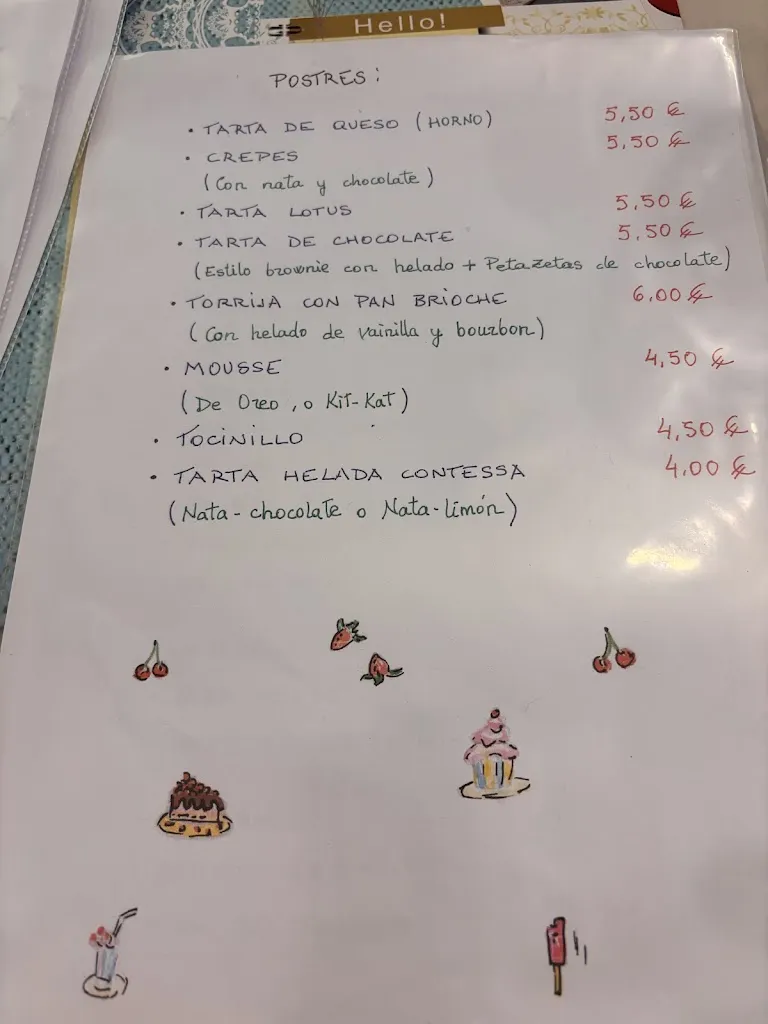 Hello!
POSTRES:
• TARTA DE QUESO (HORNO) 5,50 €
• CREPES 5,50 €
(Con nata y chocolate)
• TARTA LOTUS 5,50 €
• TARTA DE CHOCOLATE 5,50 €
(Estilo brownie con helado + Petazetas de chocolate)
• TORRIJA CON PAN BRIOCHE 6,00 €
(Con helado de vainilla y bourbon)
• MOUSSE 4,50 €
(De Oreo, o Kit-Kat)
• TOCINILLO 4,50 €
• TARTA HELADA CONTESSA 4,00 €
(Nata-chocolate o Nata-limón)